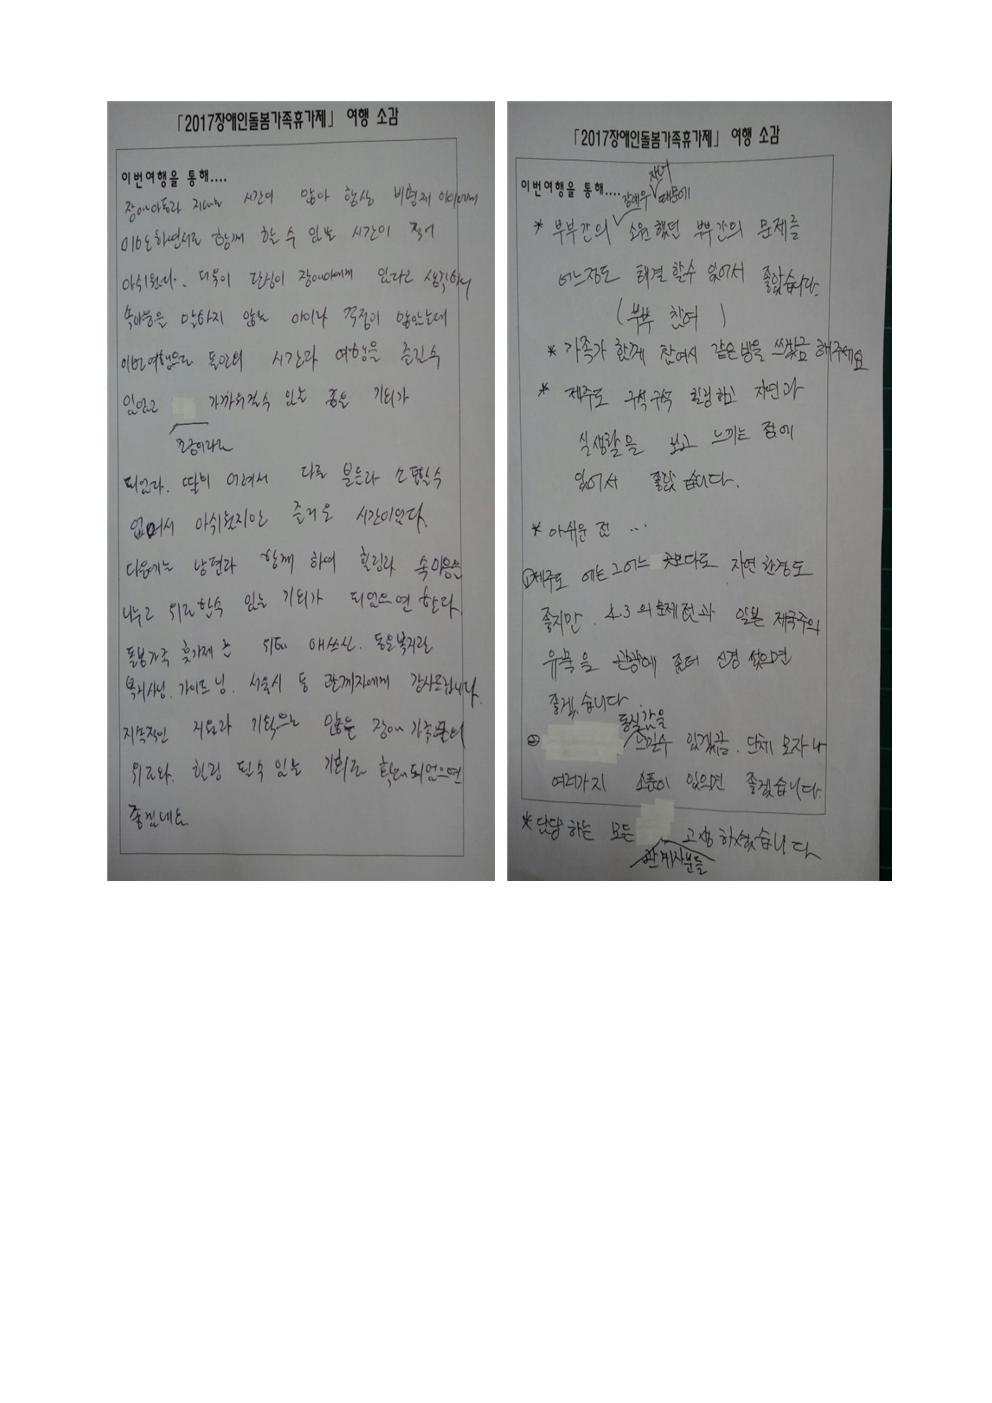 「2017장애인돌봄가족휴가제」 여행 소감
이번여행을 통해....
장애아동과 지내는 시간이 많아 항상 비형제 아이에게
미안하면서도 함께 할 수 있는 시간이 적어
아쉬웠다. 더욱이 관심이 장애아에게 있다고 생각하니
속마음을 말하지 않는 아이라 걱정이 많았는데
이번여행으로 둘만의 시간과 여행을 즐길수
있었고 조금이라도 가까워질수 있는 좋은 기회가
되었다. 딸이 어려서 다른 분들과 소통할수
없어서 아쉬웠지만 즐거운 시간이었다.
다음에는 남편과 함께 하여 힐링과 속마음을
나누고 위로할수 있는 기회가 되었으면 한다.
돌봄가족 휴가제를 위해 애쓰신
복지사님, 가이드님, 서울시 등 관계자에게 감사드립니다.
지속적인 지원과 기획으로 많은 장애 가족들이
위로와 힐링 될수 있는 기회로 확대되었으면
좋겠네요
「2017장애인돌봄가족휴가제」 여행 소감
이번여행을 통해....
* 부부간의 장애우 자녀 때문에 소원했던 부부간의 문제를
어느정도 해결할수 있어서 좋았습니다.
(부부 참여)
* 가족가 함께 참여서 같은방을 쓰게끔 해주세요
* 제주도 구석구석 힐링하고 자연과
실생활을 보고 느끼는 점에
있어서 좋았습니다.
* 아쉬운 점 ...
① 제주도 에는 그어느 곳보다도 자연환경도
좋지만. 4.3의 문제점과 일본 제국주의
유목을 관광에 좀더 신경 썼으면
좋겠습니다.
② 동질감을 느낄수 있게끔. 단체 모자나
여러가지 소품이 있으면 좋겠습니다.
* 담당하는 모든 관계자분들 고생하셨습니다